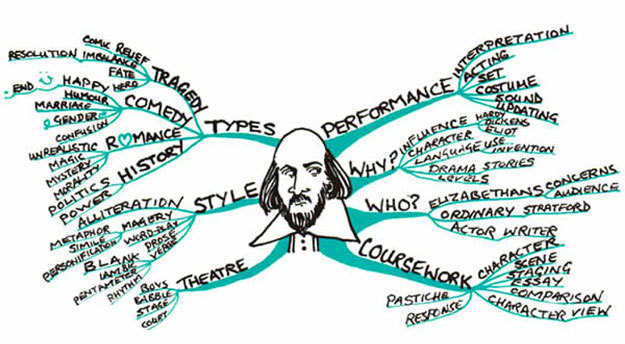 COMIC RELIEF
RESOLUTION IMBALANCE
FATE
HERO
TRAGEDY
END HAPPY
HUMOUR
MARRIAGE
GENDER
CONFUSION
COMEDY
TYPES
ROMANCE
UNREALISTIC
MAGIC
MYSTERY
MORALITY
HISTORY
POLITICS
POWER
STYLE
ALLITERATION
IMAGERY
METAPHOR
SIMILE
PERSONIFICATION
WORD-PLAY
PROSE
VERSE
BLANK
IAMBIC
PENTAMETER
RHYTHM
THEATRE
BOYS
STAGE
COURT
PERFORMANCE
INTERPRETATION
ACTING
SET
COSTUME
SOUND
UPDATING
WHY?
INFLUENCE
HARDY
DICKENS
ELIOT
CHARACTER
LANGUAGE USE...
INVENTION
DRAMA STORIES
LEVELS
WHO?
ELIZABETHANS CONCERNS
AUDIENCE
ORDINARY STRATFORD
ACTOR WRITER
COURSEWORK
CHARACTER
SCENE
STAGING
ESSAY
COMPARISON
CHARACTER VIEW
PASTICHE
RESPONSE